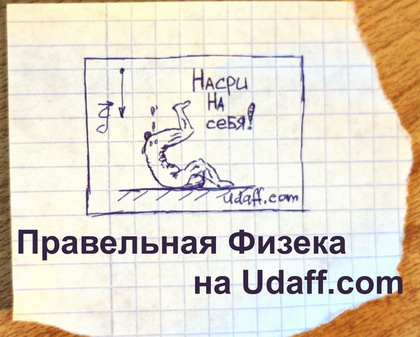 Насри
на
себя!
g
udaff.com
Правельная Физека
на Udaff.com